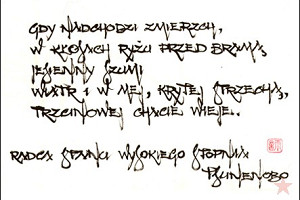 Gdy nadchodzi zmierzch,
w kłosach ryżu przed bramą,
jesienny szumi
wiatr i w mej, krytej strzechą,
trzcinowej chacie wieje.
Radca stanu wysokiego stopnia
Tsunenobo